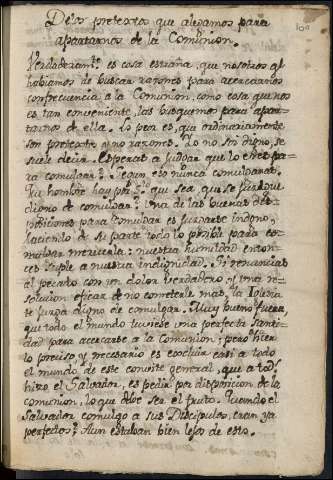 De los pretextos que alegamos para
apartarnos de la Comunion.
Verdaderamte. es cosa estraña, que nosotros q
habiamos de buscar razones para acercarnos
con frecuencia a la Comunion, como cosa que nos
es tan conveniente, las busquemos para apar-
tarnos de ella. Lo peor es, que ordinariamente
son pretextos y no razones. Yo no soy digno, se
suele decir. Esperas a juzgar que lo eres pa-
ra comulgar? segun eso nunca comulgaras.
Que hombre hay por que sea, que se juzgue
digno de comulgar? Una de las buenas dis-
posiciones para comulgar es juzgarse indigno,
haciendo de su parte todo lo posible para co-
mulgar merecerla: nuestra humildad enton-
ces suple a nuestra indignidad. Si renuncias
al pecado con un dolor verdadero, y una re-
solucion eficaz de no cometerle mas, la Iglesia
te juzga digno de comulgar. Muy bueno fuera,
que todo el mundo tuviese una perfecta santi-
dad para acercarse a la Comunion; pero hacer
lo preciso y necesario es excluir casi a todo
el mundo de este convite general, que a todos
hizo el Salvador, es pedir por disposicion de la
comunion, lo que debe ser el fruto. Quando el
Salvador comulgo a sus Discipulos, eran ya
perfectos? Aun estaban bien lejos de esto.